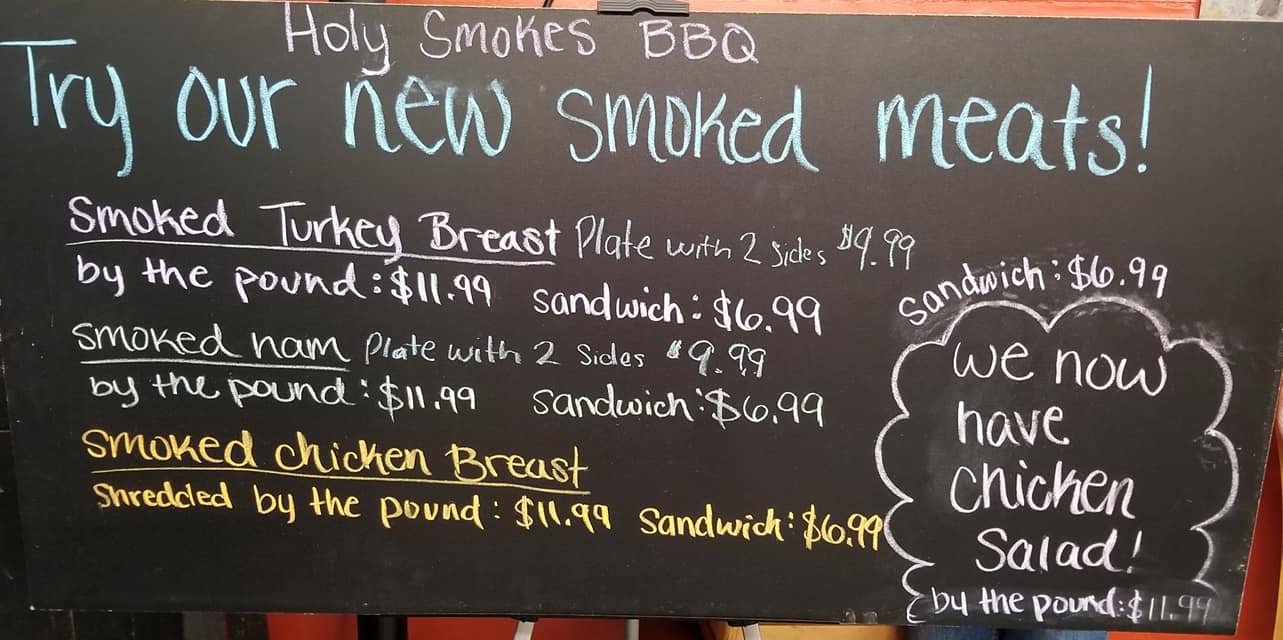 Holy Smokes BBQ
Try our new smoked meats!
Smoked Turkey Breast Plate with 2 Sides $9.99
by the pound: $11.99 sandwich: $6.99
smoked ham Plate with 2 Sides $9.99
by the pound: $11.99 sandwich: $6.99
smoked chicken Breast
Shredded by the pound: $11.99 Sandwich: $6.99
sandwich: $6.99
we now
have
chicken
Salad!
by the pound: $11.99